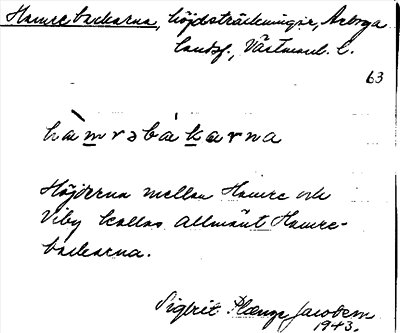 Hamrebackarna, höjdsträckningar, Arboga
landsf., Västmanl. l.
63
hàmrəbákarna
Höjderna mellan Hamre och
Viby kallas allmänt Hamre-
backarna.
Sigbrit Plænge Jacobson
1943.